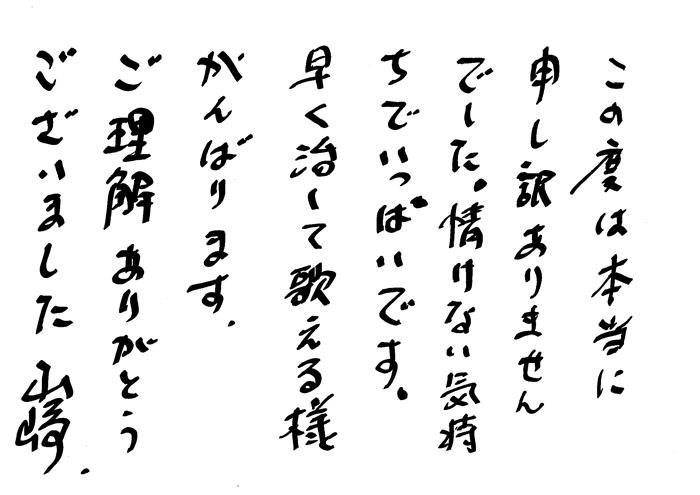 この度は本当に
申し訳ありません
でした。情けない気持
ちでいっぱいです。
早く治して歌える様
がんばります.
ご理解ありがとう
ございました 山崎.